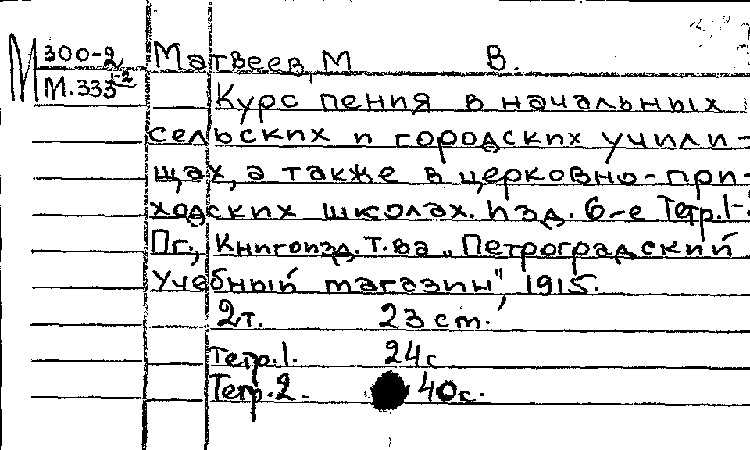 М 300-2
М.333-2
Матвеев, М В.
Курс пения в начальных
сельских и городских учили-
щах, а также в церковно-при-
ходских школах. Изд. 6-е Тетр.1-
Пг., Книгоизд. Т.ва „Петроградский
Учебный магазин", 1915.
2т. 23 ст.
Тетр.1. 24с
Тетр.2. 40с.